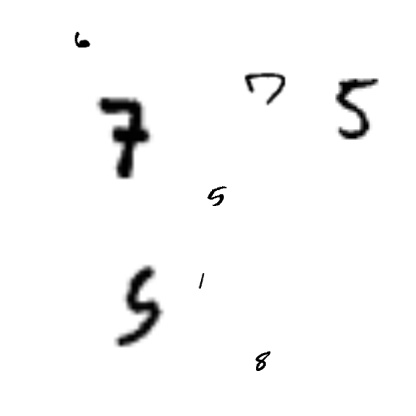 6
7 7 5
5
5 1
8